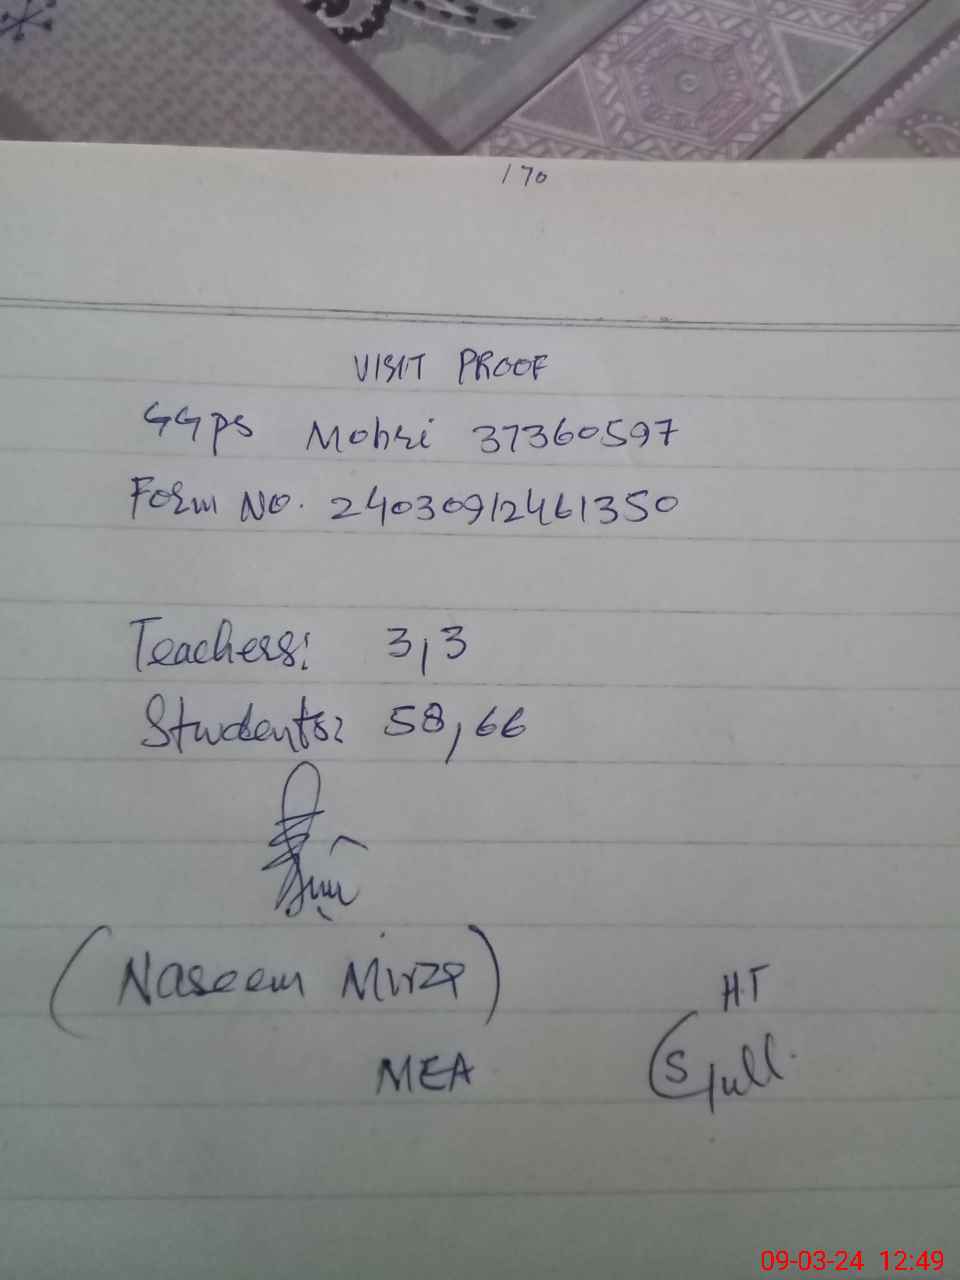 170
VISIT PROOF
GGPS Mohri 37360597
Form No. 24030912461350
Teachers: 3,3
Students: 58,66
(Naseem Mirza)
H.T
MEA
09-03-24 12:49